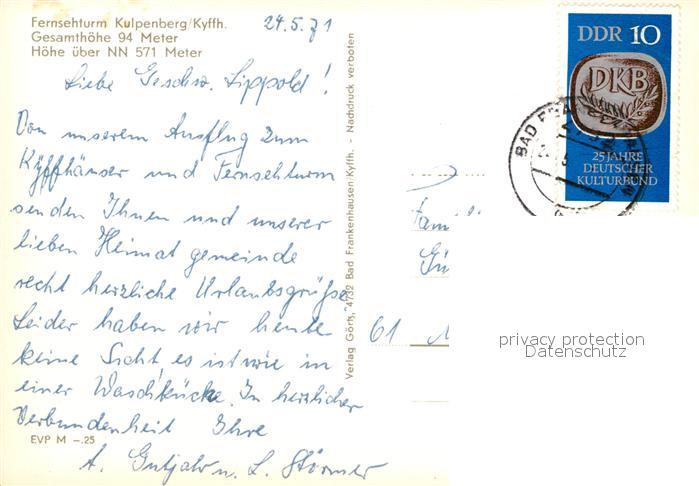 Fernsehturm Kulpenberg/Kyffh.
Gesamthöhe 94 Meter
Höhe über NN 571 Meter
24.5.71
Liebe Geschw. Lippold!
Von unserem Ausflug zum
Kyffhäuser und Fernsehturm
senden Ihnen und unserer
lieben Heimat gemeinde
recht herzliche Urlaubsgrüße
Leider haben wir heute
keine Sicht, es ist wie in
einer Waschküche. In herzlicher
Verbundenheit Ihre
A. Gutjahr u. L. Störmer
EVP M -.25
Verlag Görtz, 4732 Bad Frankenhausen/Kyffh. - Nachdruck verboten
DDR 10
DKB
25 JAHRE
DEUTSCHER
KULTURBUND
BAD FRA
Fami
Gü
61
privacy protection
Datenschutz